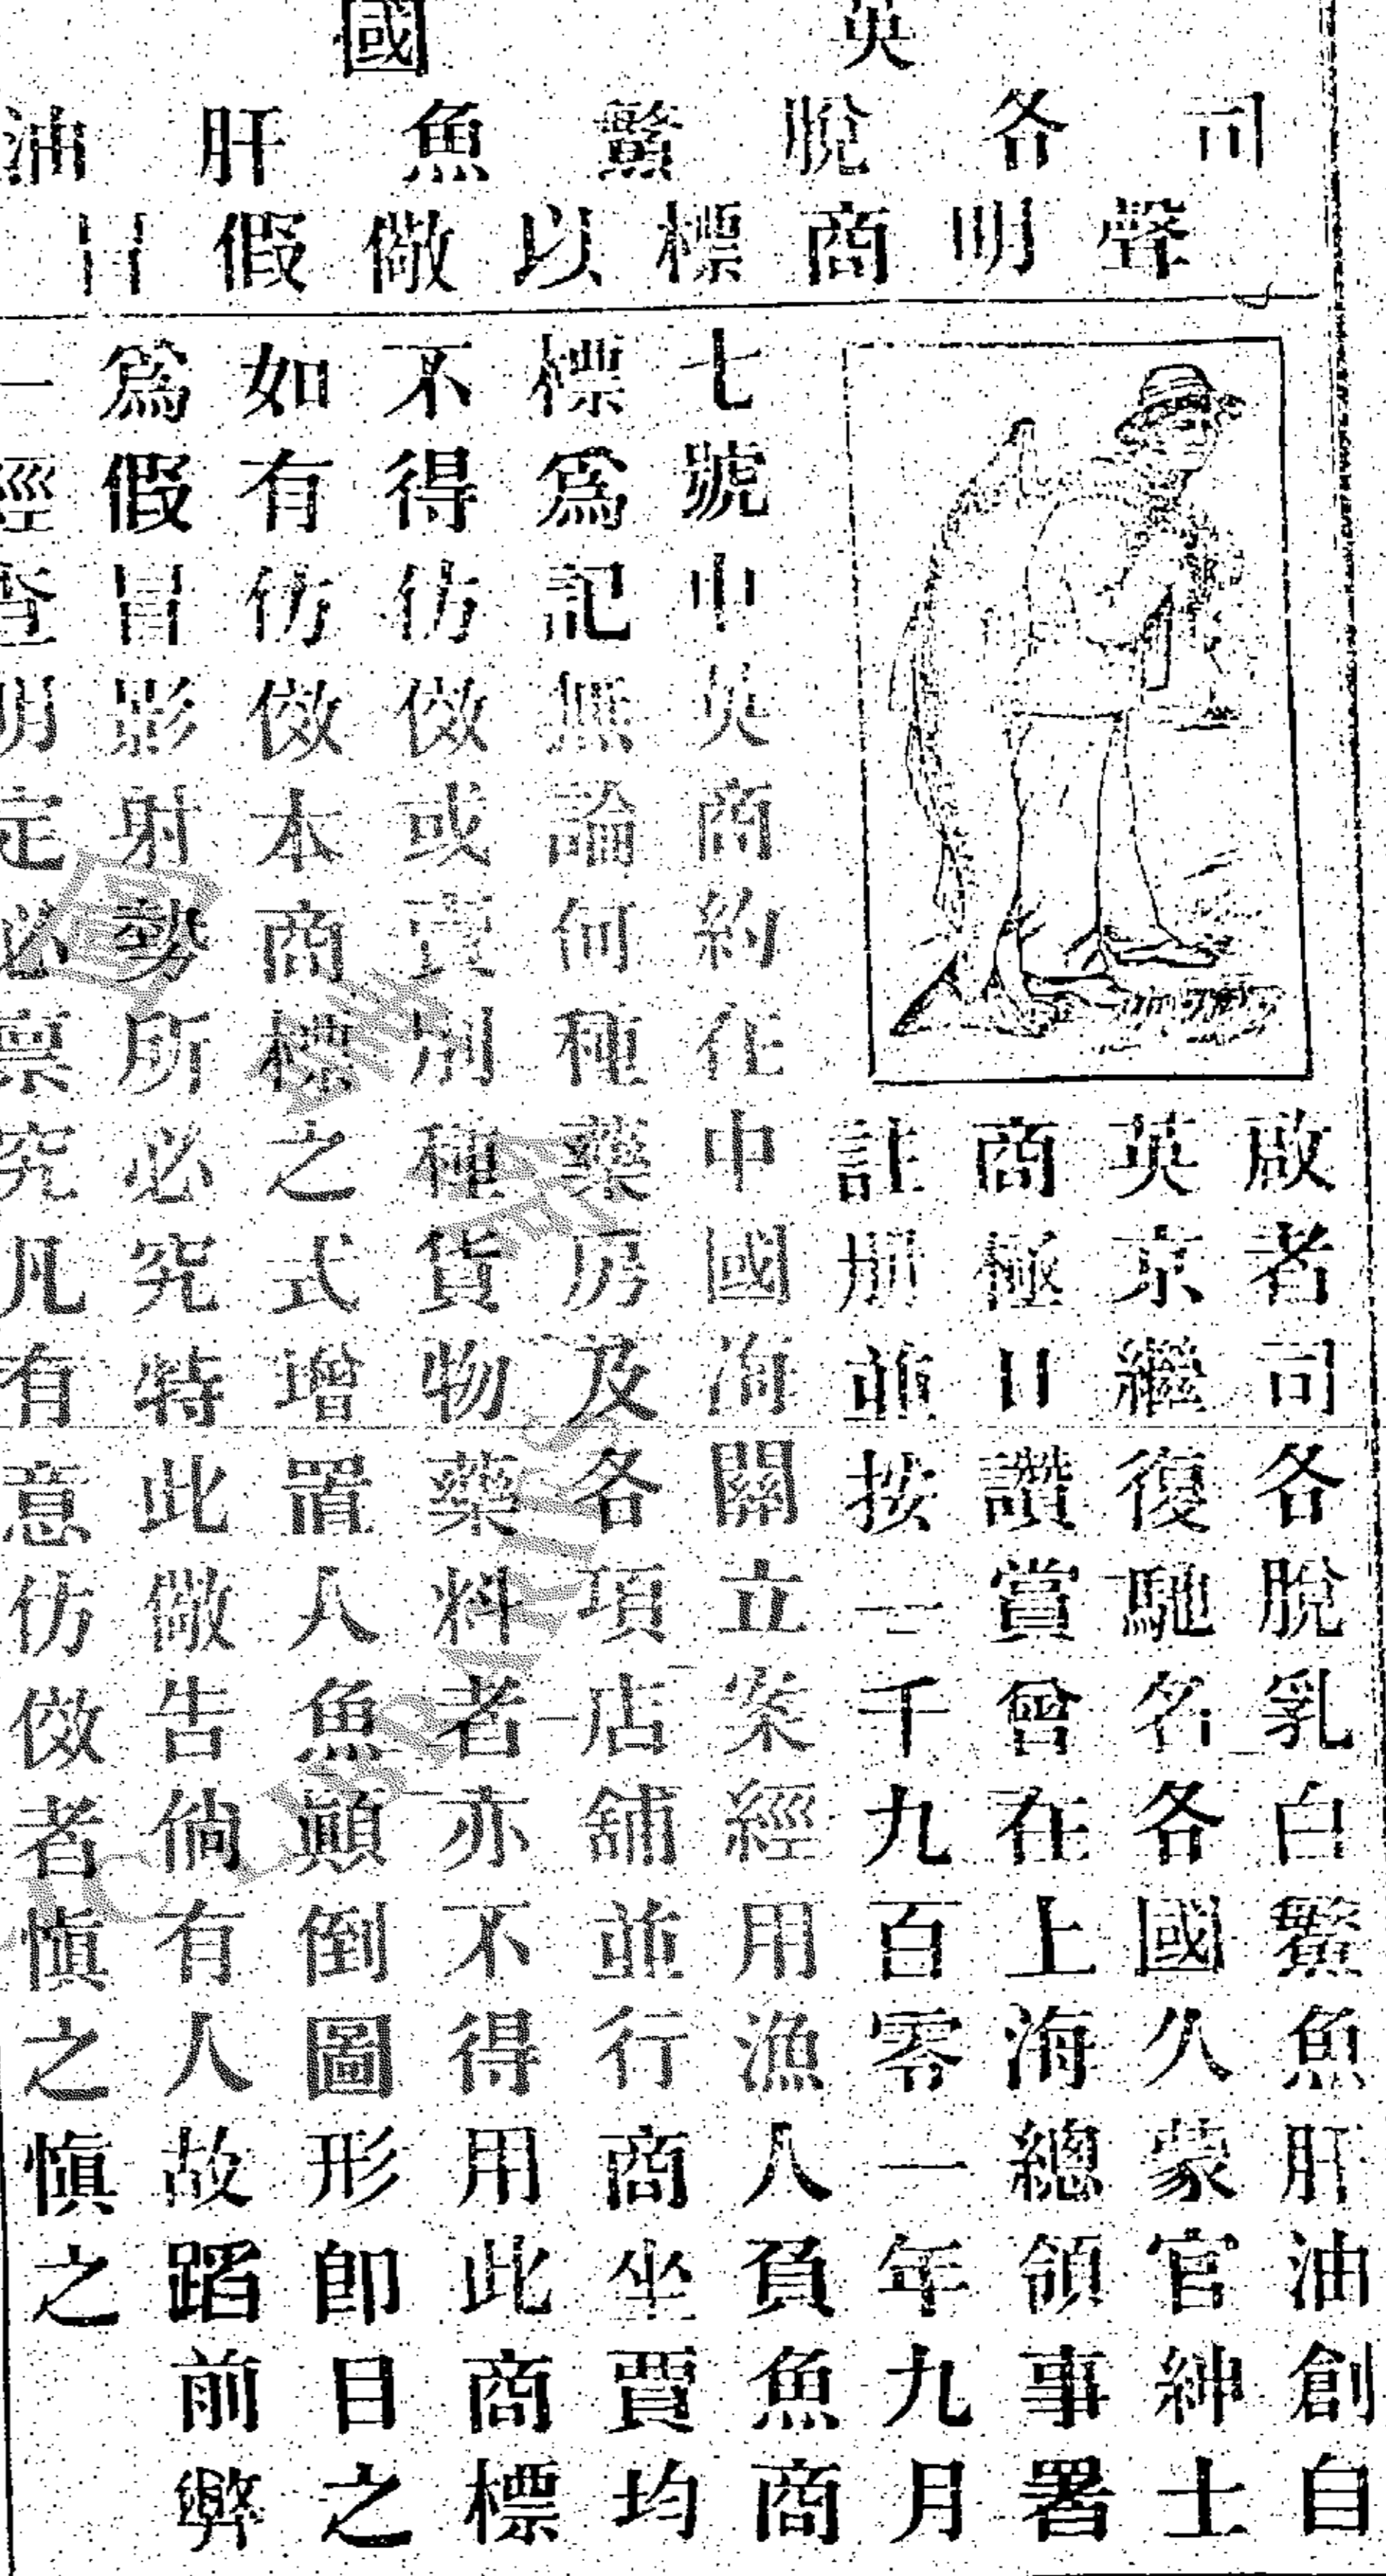 英國
司各脫鰵魚肝油
聲明商標以儆假冒
啟者司各脫乳白鰵魚肝油創自
英京繼復馳名各國久蒙官紳士
商極口讚賞曾在上海總領事署
註册並按一千九百零一年九月
七號中英商約在中國海關立案經用漁人負魚商
標爲記無論何種藥房及各項店舖並行商坐賈均
不得仿傚或賣別種貨物藥料者亦不得用此商標
如有仿傚本商標之式增置人魚顛倒圖形卽目之
爲假冒影射勢所必究特此儆告倘有人故蹈前弊
一經查明定必禀究凡有意仿傚者愼之愼之